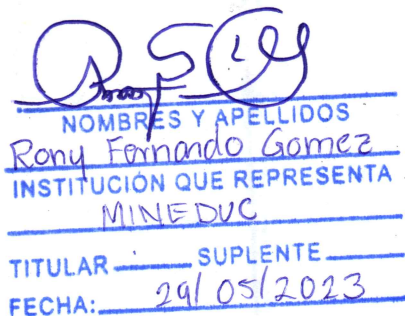 NOMBRES Y APELLIDOS
Rony Fernando Gomez
INSTITUCIÓN QUE REPRESENTA
MINEDUC
TITULAR SUPLENTE
FECHA: 29/05/2023